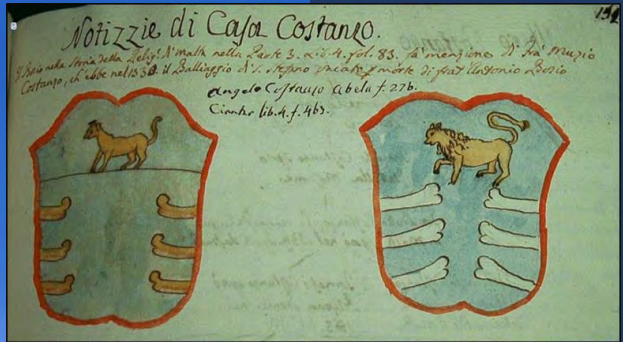 134
Notizzie di Casa Costanzo.
Il Bosio nella Storia della Relig.e di Malta nella Parte 3. Lib. 4. fol. 83. fa menzione di Fra Muzio
Costanzo, ch'ebbe nel 153 il Balliaggio di S. Stefano morte di frat' Antonio Bosio
Angelo Costanzo Abela f. 276.
Ciantar lib. 4. f. 463.